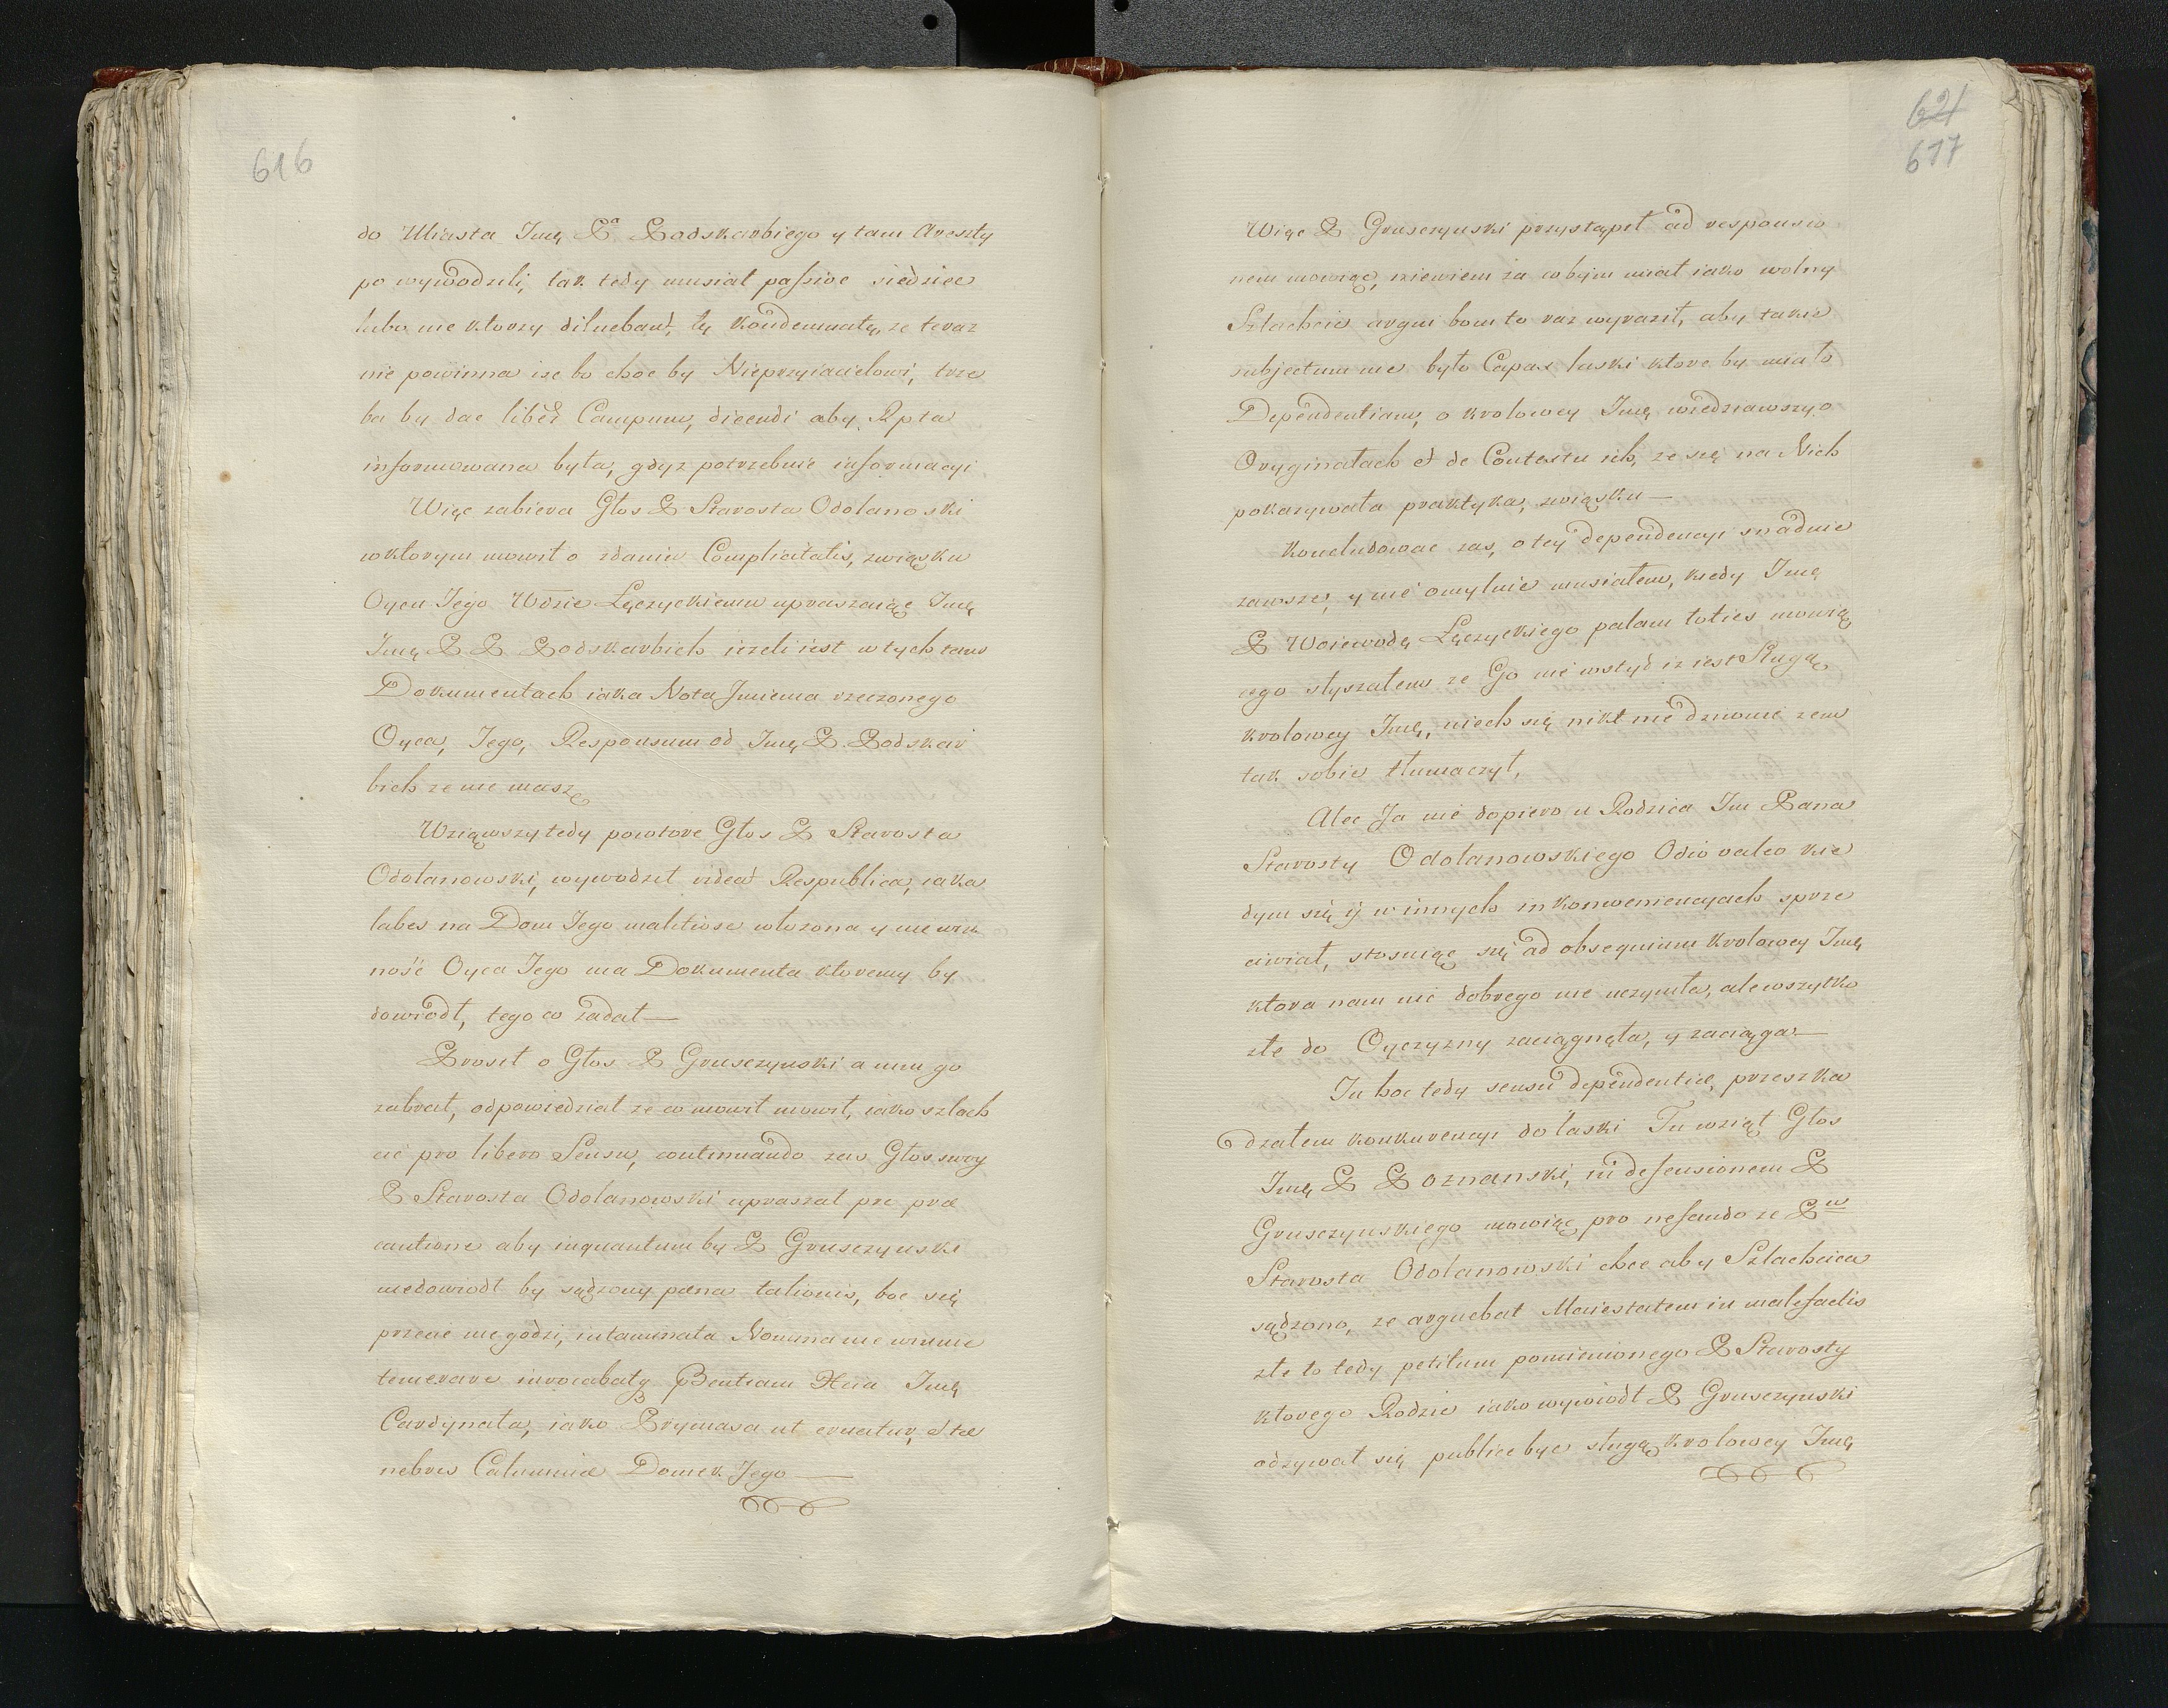 616
do Miasta Imę Pa Podskarbiego y tam Areszty
po wywodzili, tak tedy musiał passive siedziec
lubo nie ktorzy diluebant, tę Kondemnatę, ze teraz
nie powinna isc bo choc by Nieprzyiacielowi, trze
ba by dac liber Campum, dicendi aby Rpta
informowana była, gdyz potrzebuie informacyi
Więc zabiera Głos P Starosta Odolanoski
w ktorym mowił o zdaniu Complicitatis, związku
Oycu Jego Wdzie Łęczyckiemu upraszaiąc Imę
Imę P P Podskarbich iezeli iest w tych tam
Dokumentach iaka Nota Imienia rzeczonego
Oyca, Jego, Responsum od Imę P. Podskar
bich ze nie masz
Wziąwszy tedy powtore Głos P Starosta
Odolanowski, wywodził videat Respublica, iaka
labes na Dom Jego malitiose włozona y niewin
ność Oyca Jego ma Dokumenta ktoremy by
dowiodł, tego co zadał—
Prosił o Głos P Grusczynski a nim go
zabrał, odpowiedział ze co mowił mowił, iako szlach
cic pro libero Sensu, continuando zas Głos swoy
P Starosta Odolanowski upraszał pre præ
cautione aby inquantum by P Grusczynski
niedowiodł by sądzony pæna talionis, boc się
przecie nie godzi, intaminata Nomina nie winnie
temerare invocabat q Bentiam Xcia Imę
Cardynała, iako Prymasa ut eruatur, e tæ
nebris Calumniæ Domek Jego—
621
617
Więc P Grusczynski przystąpił ad responsio
nem mowiąc, niewiem za co bym miał iako wolny
Szlachcic argui bom to raz wyraził, aby takie
subjectum nie było Capax laski ktore by miało
Dependentiam, o krolowey Imę wiedziawszy o
Oryginałach et de Contextu ich, ze się na Nich
pokazywała praktyka, związku—
Koncludowac zas, o tey dependencyi snadnie
zawsze, y nie omylnie musiałem, kiedy Imę
P Woiewodę Łęczyckiego palam toties mowią
cego słyszałem ze Go nie wstyd iz iest Sługą
krolowey Imę, niech się nikt nie dziwuie zem
tak sobie tłumaczył,
Alec Ja nie dopiero u Rodzica Im Pana
Starosty Odolanowskiego Odio valeo kie
dym się ij w innych inkonweniencyach sprze
ciwiał, stosuiąc się ad obsequium Krolowey Imę
ktora nam nic dobrego nie uczyniła, ale wszytko
złe do Oyczyzny zaciągnęła, y zaciąga—
In hoc tedy sensu dependentiæ, przeszka
dzałem konkurencyi do laski Tu wziął Głos
Imę P Poznanski, in defensionem P
Grusczynskiego mowiąc pro nefando ze Pn
Starosta Odolanowski chce aby Szlachcica
sądzono, ze arguebat Maiestatem in malefactis
złe to tedy petitum pomienionego P Starosty
ktorego Rodzic iako wywiodł P Grusczynski
odzywał się publice byc sługą krolowey Imę